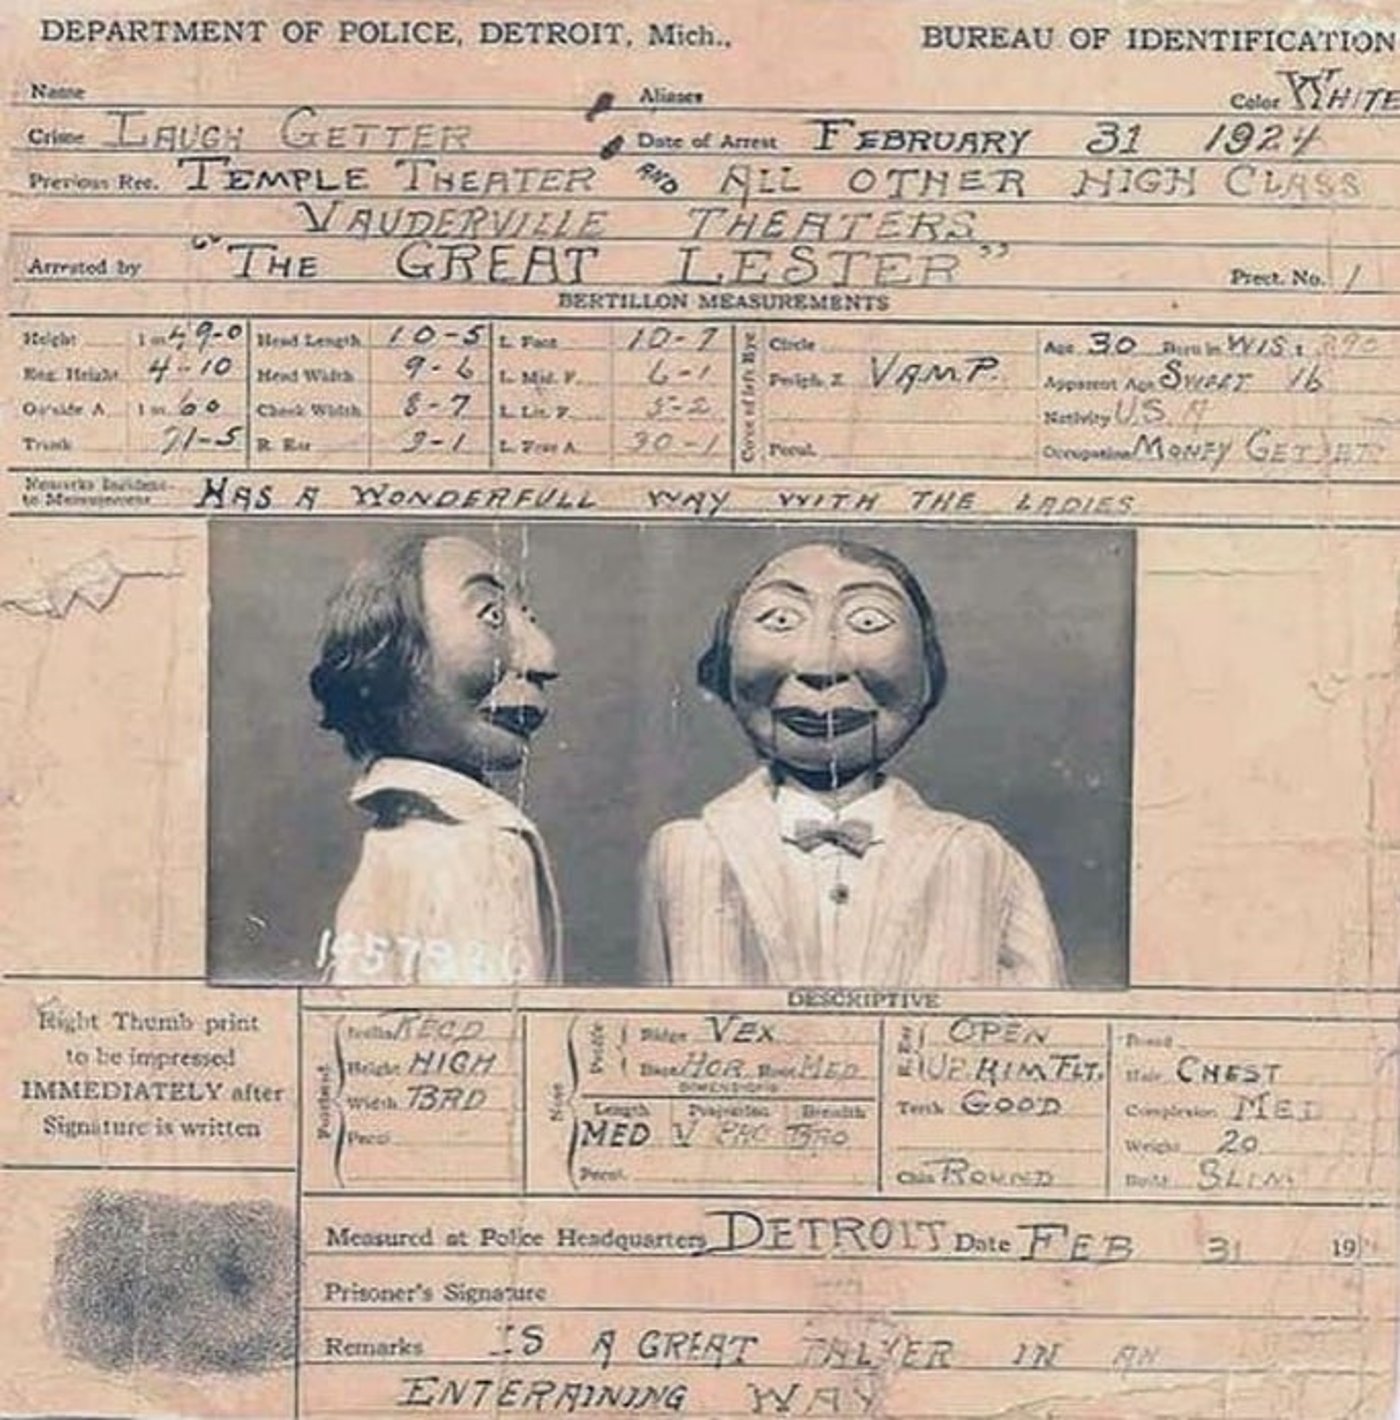 DEPARTMENT OF POLICE, DETROIT, Mich.,
BUREAU OF IDENTIFICATION
Name Aliases Color WHITE
Crime LAUGH GETTER Date of Arrest FEBRUARY 31 1924
Previous Rec. TEMPLE THEATER AND ALL OTHER HIGH CLASS
VAUDERVILLE THEATERS
Arrested by "THE GREAT LESTER" Prect. No. 1
BERTILLON MEASUREMENTS
Height 1 m 49-0 Head Length 10-5 L. Foot 10-7 Circle Age 30 Born in WIS
Eng. Height 4-10 Head Width 9-6 L. Mid. F. 6-1 Periph. Z VAMP. Apparent Age SWEET 16
Outside A. 1 m 60 Cheek Width 8-7 L. Lit. F. 5-2 Nativity U.S.A
Trunk 71-5 R. Ear 9-1 L. Fore A. 30-1 Pecul. Occupation MONEY GETTER
Color of left Eye
Remarks Incident to Measurement HAS A WONDERFULL WAY WITH THE LADIES
DESCRIPTIVE
Right Thumb print
to be impressed
IMMEDIATELY after
Signature is written
Forehead
Inclin. RECD
Height HIGH
Width BRD
Pecul.
Nose
Profile
Ridge VEX
Base HOR Root MED
DIMENSIONS
Length Projection Breadth
MED V PRO BRO
Pecul.
R. Ear
OPEN
UP. HIM FLT.
Teeth GOOD
Chin ROUND
Beard
Hair CHEST
Complexion MED
Weight 20
Build SLIM
Measured at Police Headquarters DETROIT Date FEB 31 19
Prisoner's Signature
Remarks IS A GREAT TALKER IN AN
ENTERAINING WAY